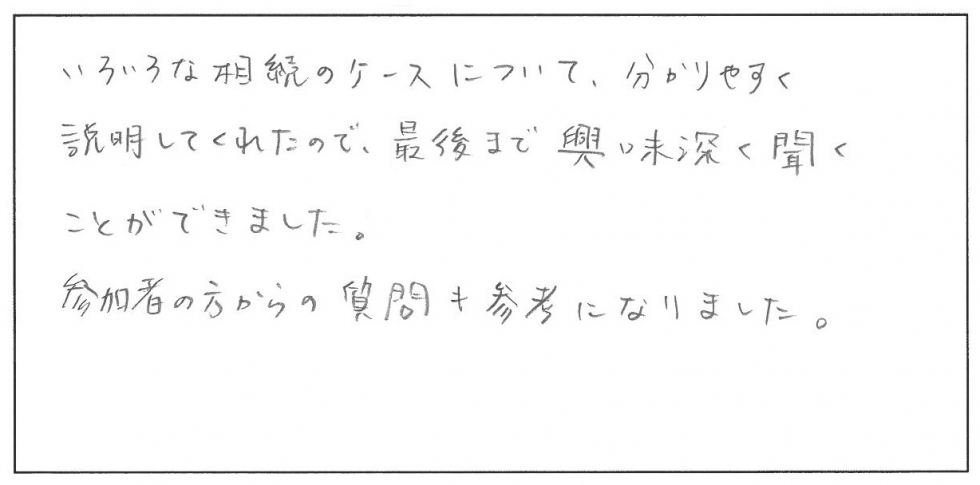 いろいろな相続のケースについて、分かりやすく
説明してくれたので、最後まで興味深く聞く
ことができました。
参加者の方からの質問も参考になりました。